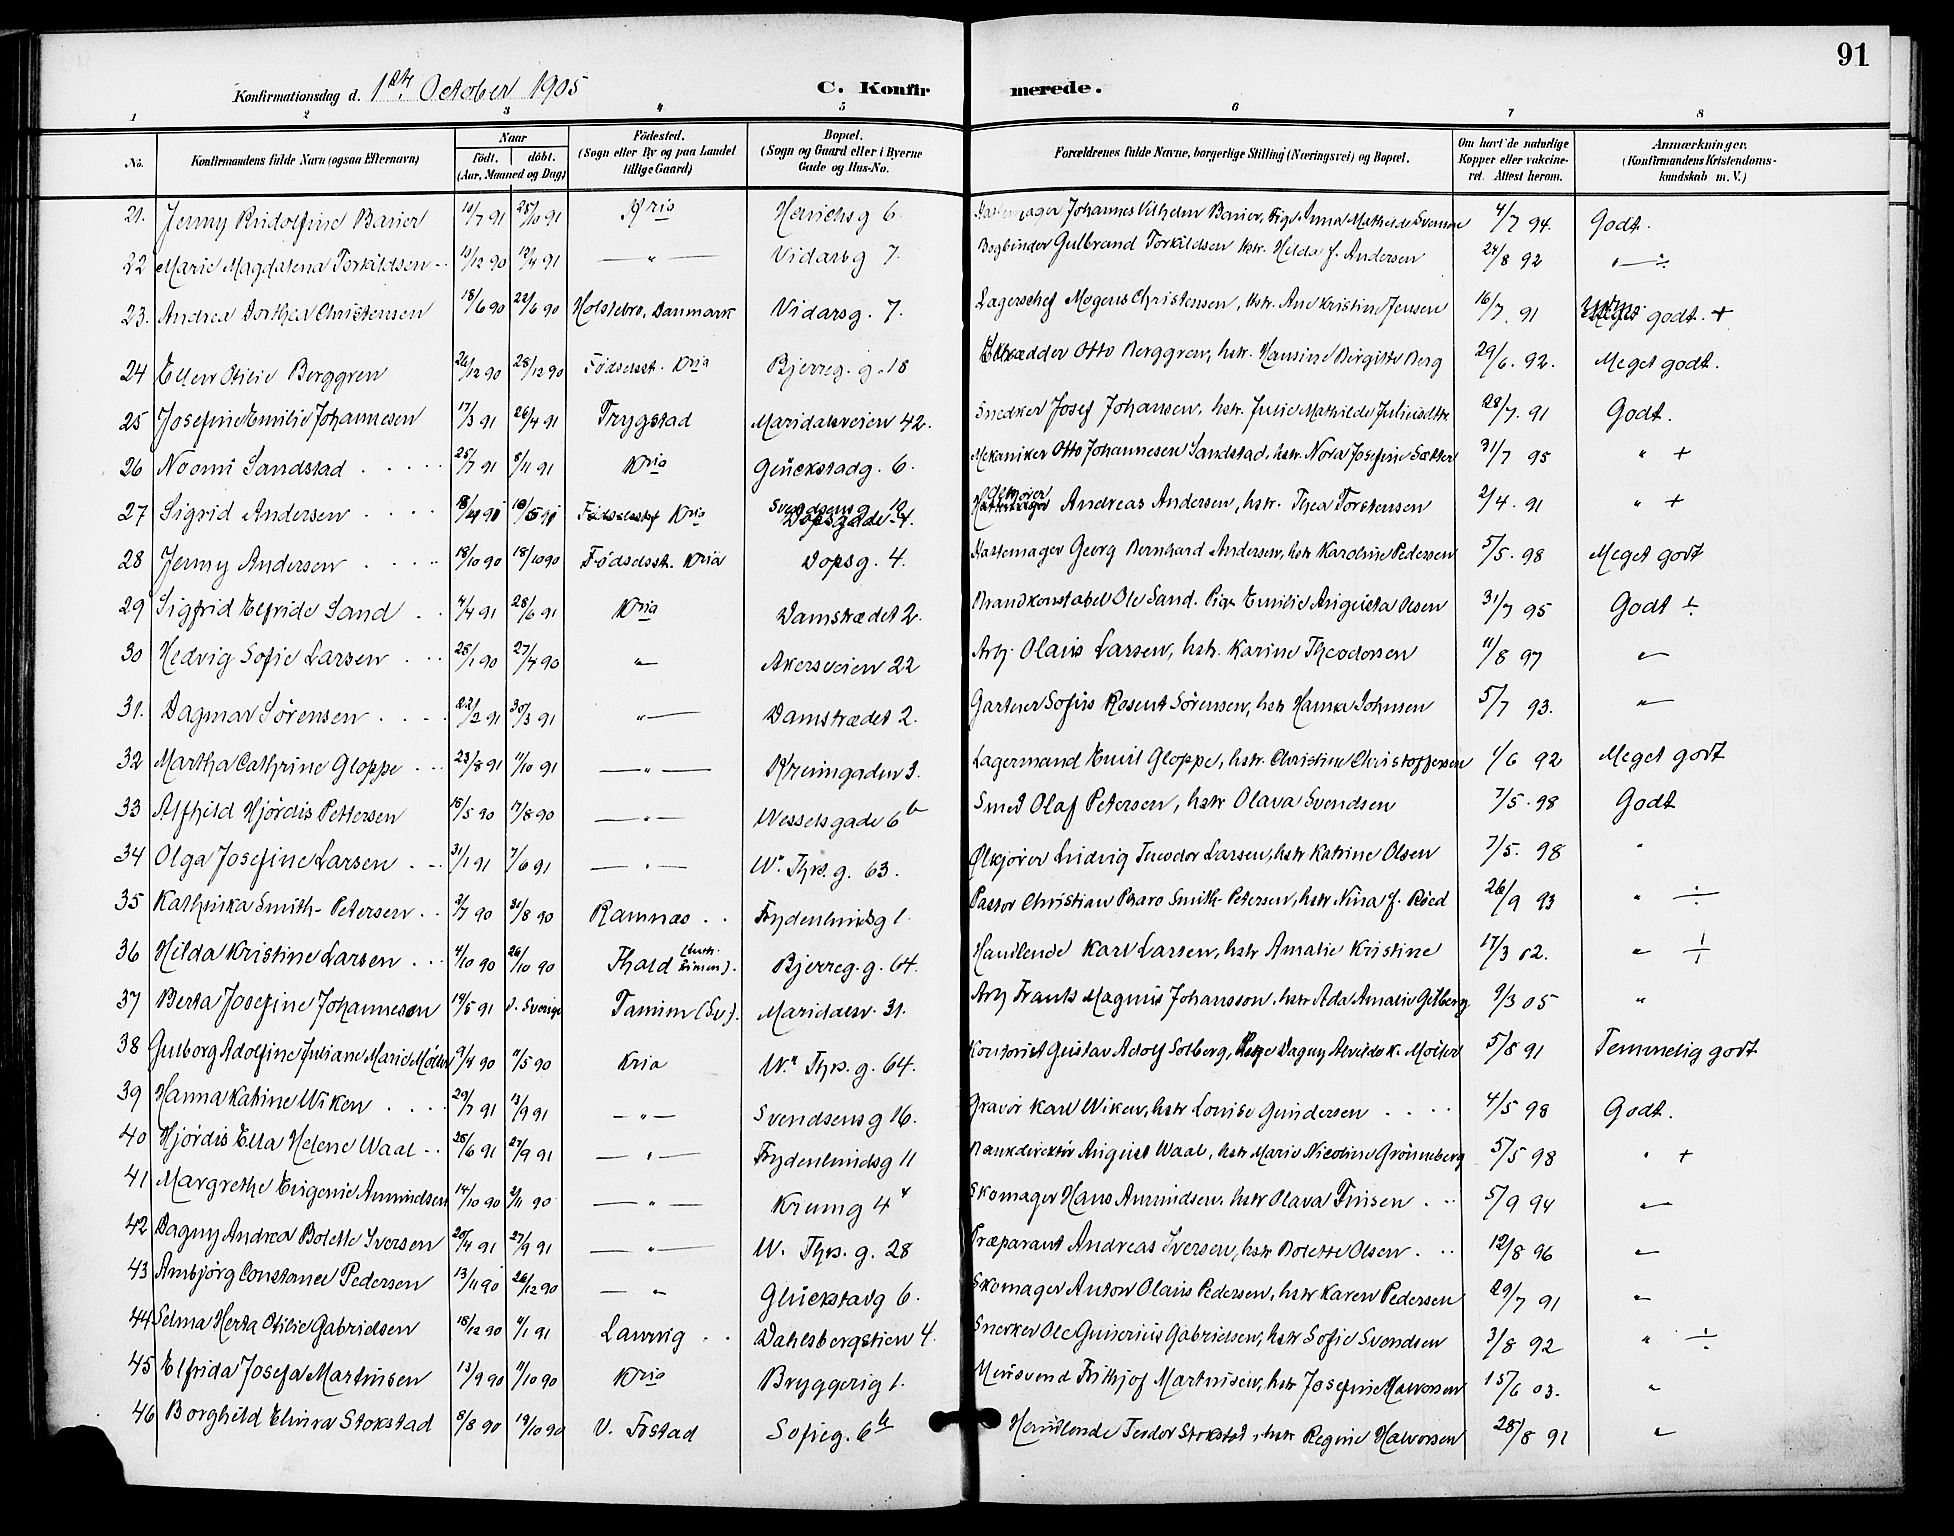 91
Konfirmationsdag d. 1ste October 1905 C. Konfirmerede.
1 2 3 4 5 6 7 8
No. Konfirmandens fulde Navn (ogsaa Efternavn) Naar födt. döbt. (Aar, Maaned og Dag) Födested. (Sogn eller By og paa Landet tillige Gaard) Bopæl. (Sogn og Gaard eller i Byerne Gade og Hus-No. Forældrenes fulde Navne, borgerlige Stilling (Næringsvei) og Bopæl. Om havt de naturlige Kopper eller vakcineret. Attest herom. Anmærkninger. (Konfirmandens Kristendomskundskab m. V.)
21. Jenny Rudolfine Barier 10/7 91 25/10 91 Kria g 6. Johannes Vilhelm Barier, Anna Mathilde 4/7 94. Godt.
22 Marie Magdalena Torkildsen 13/12 90 12/4 91 — " — Vidarsg 7. Bogbinder Gulbrand Torkildsen hstr. Hilda f. Andersen 24/8 92 " — ÷
23. Andrea Dorthea Christensen 18/6 90 22/6 90 Holstebro, Danmark Vidarsg. 7. Lagerchef Mogens Christensen, hstr. Ane Kristine Jensen 16/7 91 godt. +
24 Ellen Otilie Berggren 26/12 90 28/12 90 Födselsst. Kria Bjerreg. g. 18 Otto Berggren, hstr. Hansine Birgitte Berg 29/6. 92. Meget godt.
25 Josefine Emilie Johannesen 17/3 91 26/4 91 Trygstad Maridalsveien 42. Snedker Josef Johansen, hstr. Julie Mathilde 28/7. 91 Godt.
26 Noomi Sandstad 25/7 91 8/11 91 Kria Glückstadg. 6. Mekaniker Otto Johannesen Sandstad, hstr. Nora Josefine Sætter 31/7 95 " +
27 Sigrid Andersen 10/5 Födselsst. Kria Svendsens g 12 Dopsgade 4. Andreas Andersen, hstr. Thea Torstensen 2/4. 91 " +
28 Jenny Andersen 18/10 90 18/10 90 Födselsst. Kria Dopsg. 4. Georg Bernhard Andersen, hstr Karoline Pedersen 5/5. 98 Meget godt
29 Sigfrid Elfride Sand 4/4 91 28/6 91 Kria Damstrædet 2. Brandkonstabel Ole Sand. Pige Emilie Augusta Olsen 31/7 95 Godt ÷
30 Hedvig Sofie Larsen 28/1 90 27/4 90 " Akersveien 22 Arb. Olaus Larsen, hstr. Karine Theodorsen 11/8 97 "
31. Dagmar Sörensen 22/2 91 30/3 91 " — Damstrædet 2. Gartner Sofus Rosent Sörensen, hstr Hanna Johnsen 5/7 93. "
32 Martha Cathrine Gloppe 23/8 91 11/10 91 — " — Krumgaden 3. Lagermand Emil Gloppe, hstr. Christine Christoffersen 1/6 92 Meget godt
33 Alfhild Hjördis Pettersen 16/5 90 17/8 90 — " — Wesselsgade 6b Smed Olaf Petersen, hstr Olava Svendsen 7/5. 98 Godt
34 Olga Josefine Larsen 31/1 91 7/6 91 — " — W. Thrs. g. 63. Ölkjörer Ludvig Teodor Larsen, hstr Katrine Olsen 7/5. 98 "
35 Kathinka Smith-Petersen 3/7 90 31/8 90 Ramnæs Frydenlundsg 1. Pastor Christian Pharo Smith-Petersen, hstr Nina f. Röed 26/9 93 " ÷
36 Hilda Kristine Larsen 4/10 90 26/10 90 Bjerreg. g. 64. Handlende Karl Larsen, hstr Amalie Kristine 17/3 02. " ÷
37 Berta Josefine Johannesen 19/5 91 i Sverige Tanum (Sv). Maridalsv. 31. Arb Frants Magnus Johansson, hstr Ada Amalie Gilberg 9/3 05 "
38 Gulborg Adolfine Juliane Marie Möller 9/4 90 11/5 90 Kria W. Thrs. g. 64. Kontorist Gustav Adolf Solberg, Pige Dagny Alvilde K. Möller 5/8 91 Temmelig godt
39 Hanna Katrine Wiken 29/7 91 13/9 91 — " — Svendsens g 16. Gravör Karl Wiken, hstr Louise Gundersen 4/5 98 Godt.
40 Hjördis Ella Helene Waal 28/6 91 27/9 91 — " — Frydenlundsg 11 Bankdirektör August Waal, hstr Marie Nicoline Grönneberg 5/5 98 " +
41 Margrethe Eugenie Amundsen 14/10 90 2/11 90 — " — Krumg 4 Skomager Hans Amundsen, hstr Olava Finsen 5/9 94 "
42 Dagny Andrea Bolette Iversen 20/4 91 27/9 91 — " — W. Thrs. g. 28 Præparant Andreas Iversen, hstr Bolette Olsen 12/8 96 "
43 Ambjörg Constance Pedersen 13/11 90 26/12 90 — " Glückstadg 6. Skomager Anton Olaus Pedersen, hstr Karen Pedersen 29/7 91 "
44 Selma Herta Otilie Gabrielsen 18/12 90 4/1 91 Laurvig Dahlsbergstien 4. Snerker Ole Guneriûs Gabrielsen, hstr Sofie Svendsen 3/8 92 " ÷
45 Elfrida Josefa Martinsen 13/9 90 11/10 90 Kria Bryggerig 1. Mursvend Frithjof Martinsen, hstr Josefine Halvorsen 15/6 03. "
46 Borghild Elvira Stokstad 8/8 90 19/10 90 V. Tostad Sofieg. 6b Handlende Teodor Stokstad, hstr Regine Halvorsen 28/8 91 "